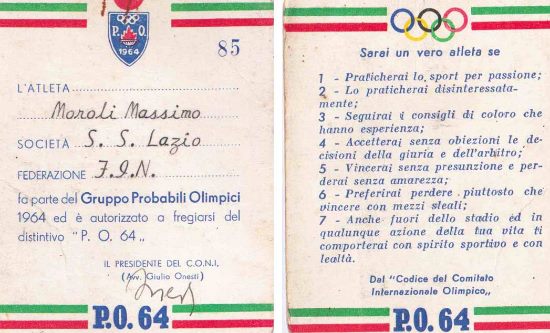 P. O.
1964
85
L'ATLETA
Moroli Massimo
SOCIETÀ S. S. Lazio
FEDERAZIONE F.I.N.
fa parte del Gruppo Probabili Olimpici
1964 ed è autorizzato a fregiarsi del
distintivo "P. O. 64„
IL PRESIDENTE DEL C.O.N.I.
(Avv. Giulio Onesti)
P.O. 64
Sarai un vero atleta se
1 - Praticherai lo sport per passione;
2 - Lo praticherai disinteressata-
mente;
3 - Seguirai i consigli di coloro che
hanno esperienza;
4 - Accetterai senza obiezioni le de-
cisioni della giuria e dell'arbitro;
5 - Vincerai senza presunzione e per-
derai senza amarezza;
6 - Preferirai perdere piuttosto che
vincere con mezzi sleali;
7 - Anche fuori dello stadio ed in
qualunque azione della tua vita ti
comporterai con spirito sportivo e con
lealtà.
Dal "Codice del Comitato
Internazionale Olimpico„
P.O. 64